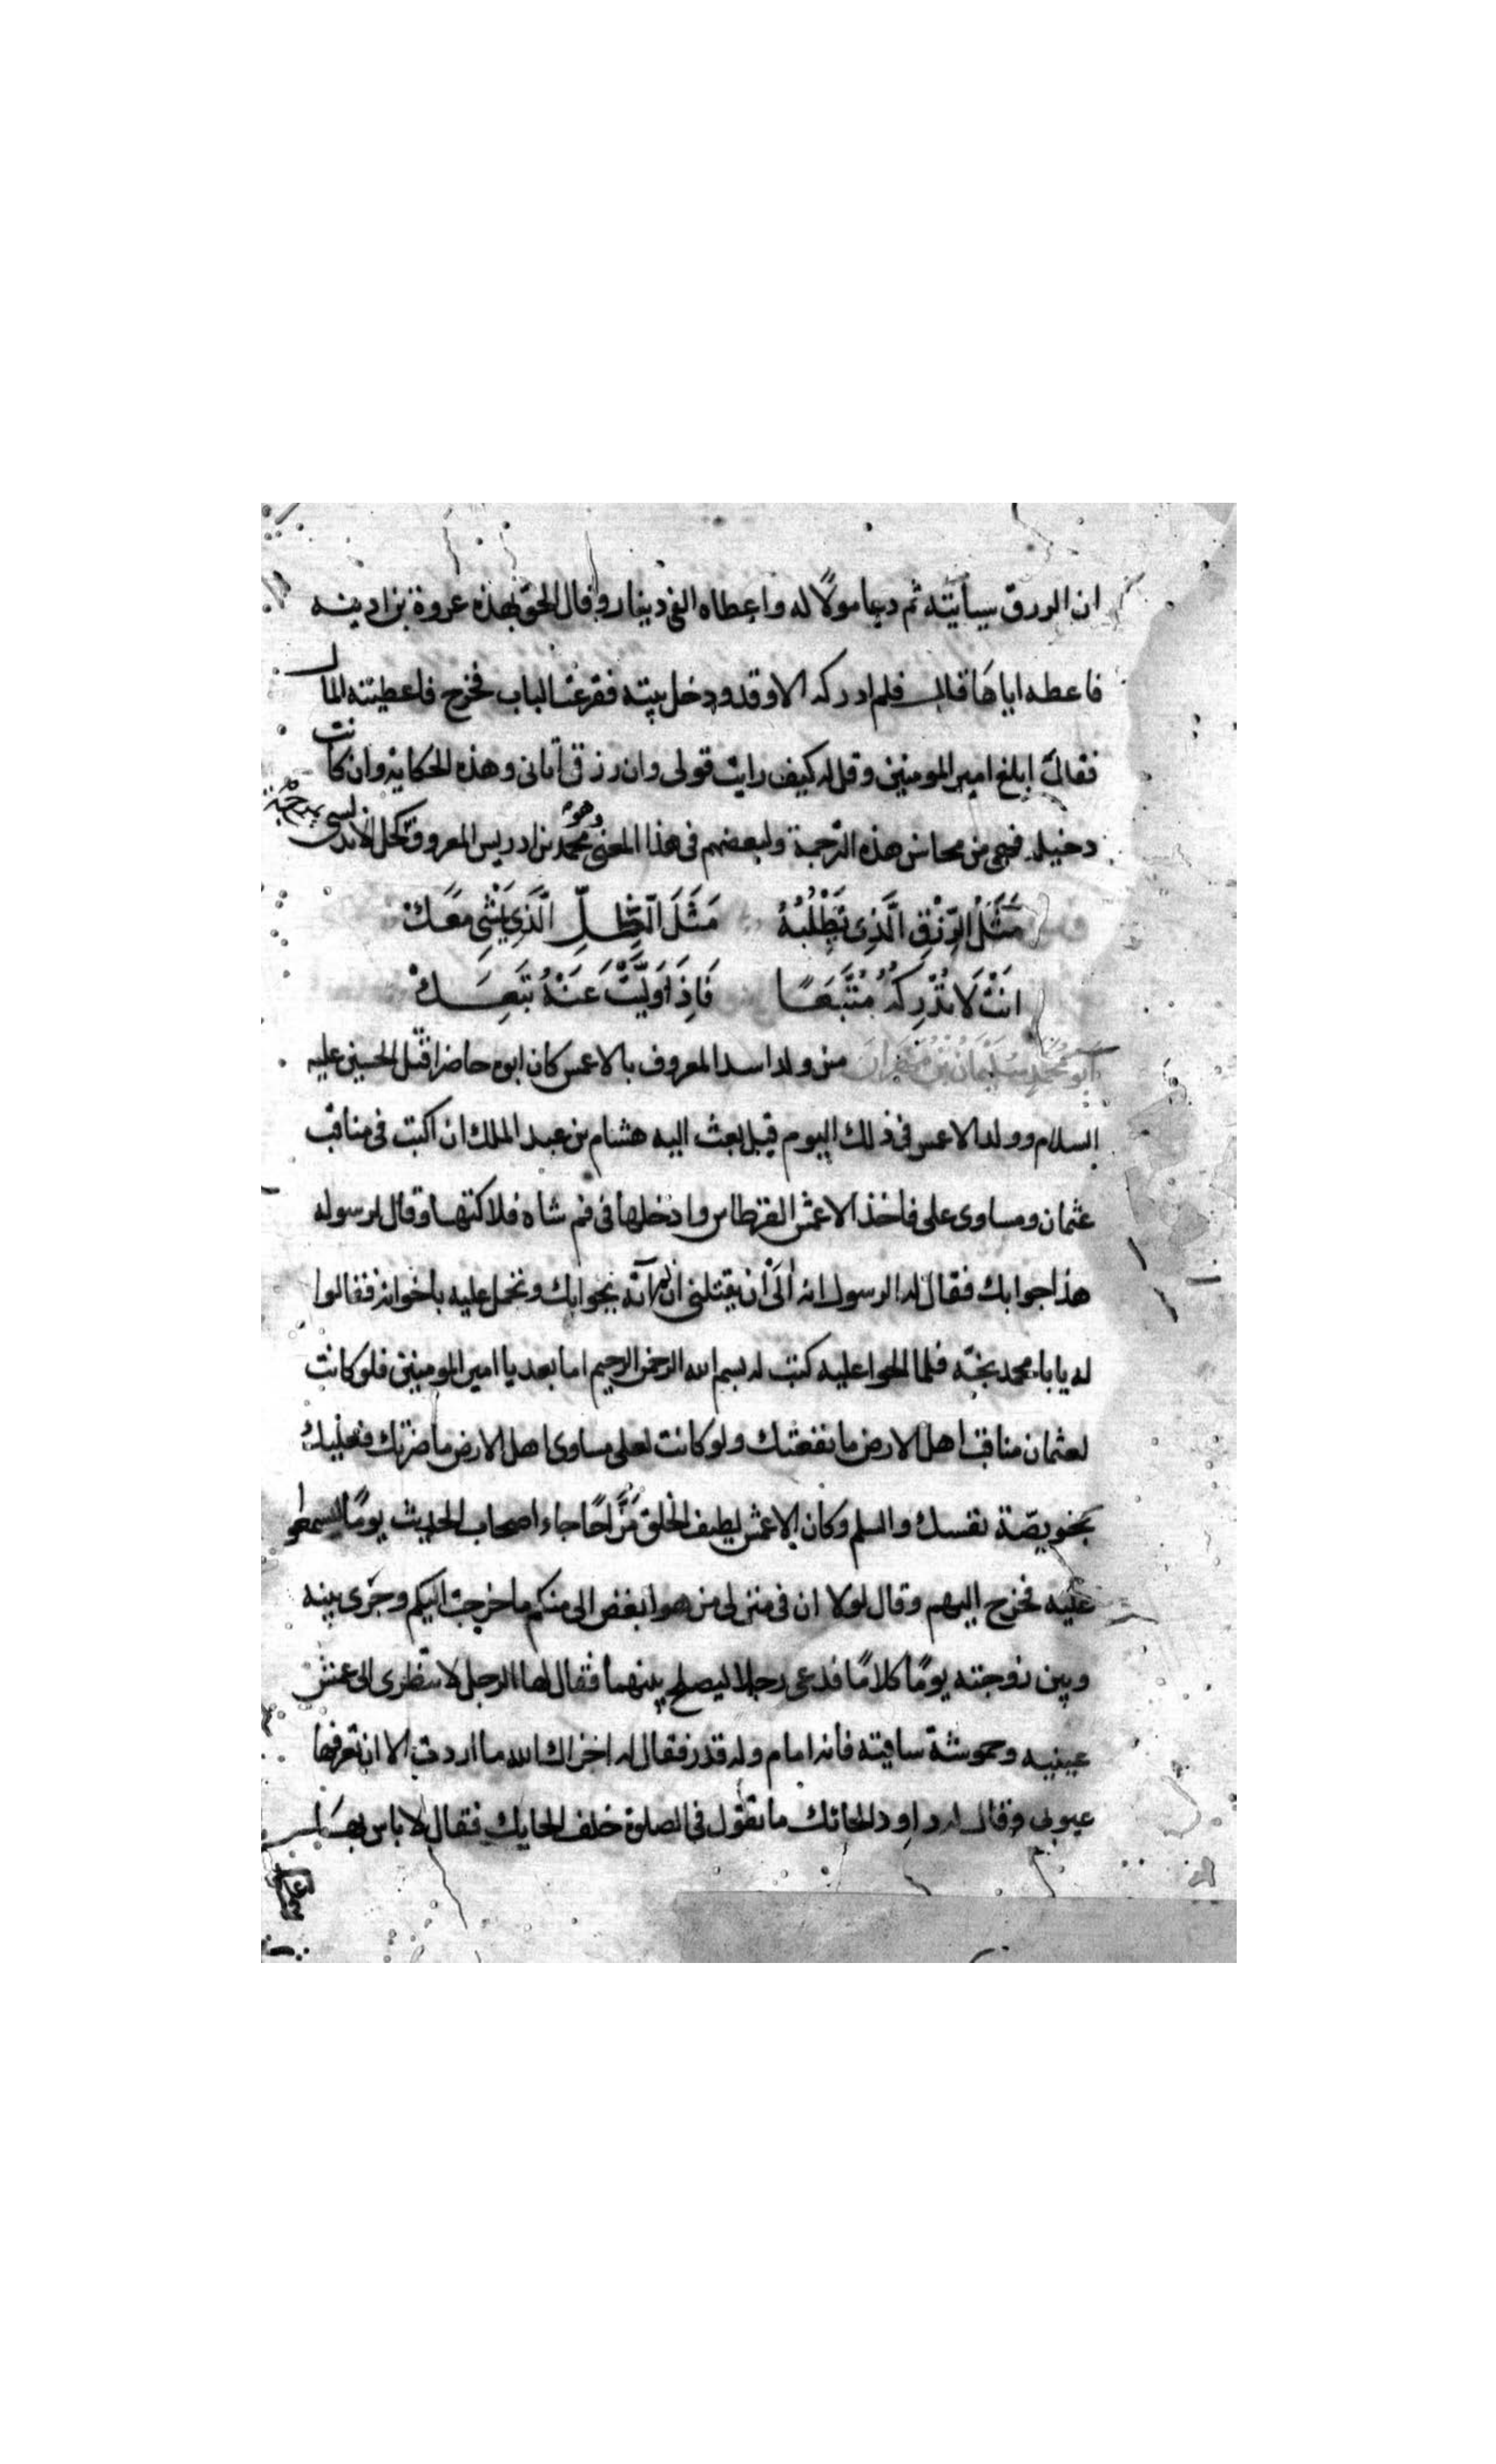 ان الرزق سيأتيه ثم دعا مولاً له واعطاه الفي دينار وقال الحق بهذه عروة بن اذينه
فاعطه اياها قال فلم ادركه الا وقد دخل بيته فقرعت الباب فخرج فاعطيته المال
فقال ابلغ امير المومنين وقل له كيف رايت قولى وان رزقى أتانى وهذه الحكاية وان كانت
دخيله فهي من محاسن هذه الترجمة ولبعضهم فى هذا المعنى وهو محمد بن ادريس المعروف بمرج كحل الاندلسى
مَثَلُ الرِّزْقِ الَّذِى تَطْلُبُهُ مَثَلُ الظِّلِّ الَّذِي يَمْشِى مَعَكْ
انْتَ لَا تُدْرِكُهُ مُتَّبِعًا فَاِذَا وَلَّيْتَ عَنْهُ تَبِعَكْ
ابو محمد سليمان بن مهران من ولد اسد المعروف بالاعمش كان ابوه حاضرا قتل الحسين عليه
السلام وولد الاعمش فى ذلك اليوم قيل بعث اليه هشام بن عبد الملك ان اكتب فى مناقب
عثمان ومساوى على فاخذ الاعمش القرطاس وادخلها فى فم شاه فلاكتها وقال لرسوله
هذا جوابك فقال له الرسول انه آلَى أن يقتلنى ان لم آته بجوابك وتحمل عليه باخوانه فقالوا
له يا با محمد نجه فلما الحوا عليه كتب له بسم الله الرحمن الرحيم اما بعد يا امير المومنين فلو كانت
لعثمان مناقب اهل الارض ما نفعتك ولو كانت لعلى مساوى اهل الارض ما ضرتك فعليك
بخويصّة نفسك والسلم وكان الاعمش لطيف الخلق مَزَّاحًا جاء اصحاب الحديث يومًا ليسمعوا
عليه فخرج اليهم وقال لولا ان فى منزلى من هو ابغض الى منكم ما خرجت اليكم وجرى بينه
وبين زوجته يومًا كلامًا فدعى رجلا ليصلح بينهما فقال لها الرجل لا تنظرى الى عمش
عينيه وحموشة ساقيته فانه امام وله قدر فقال له اخزاك الله ما اردت الا ان تعرفها
عيوبى وقال له داود الحائك ما تقول فى الصلوة خلف الحايك فقال لا باس بها
على